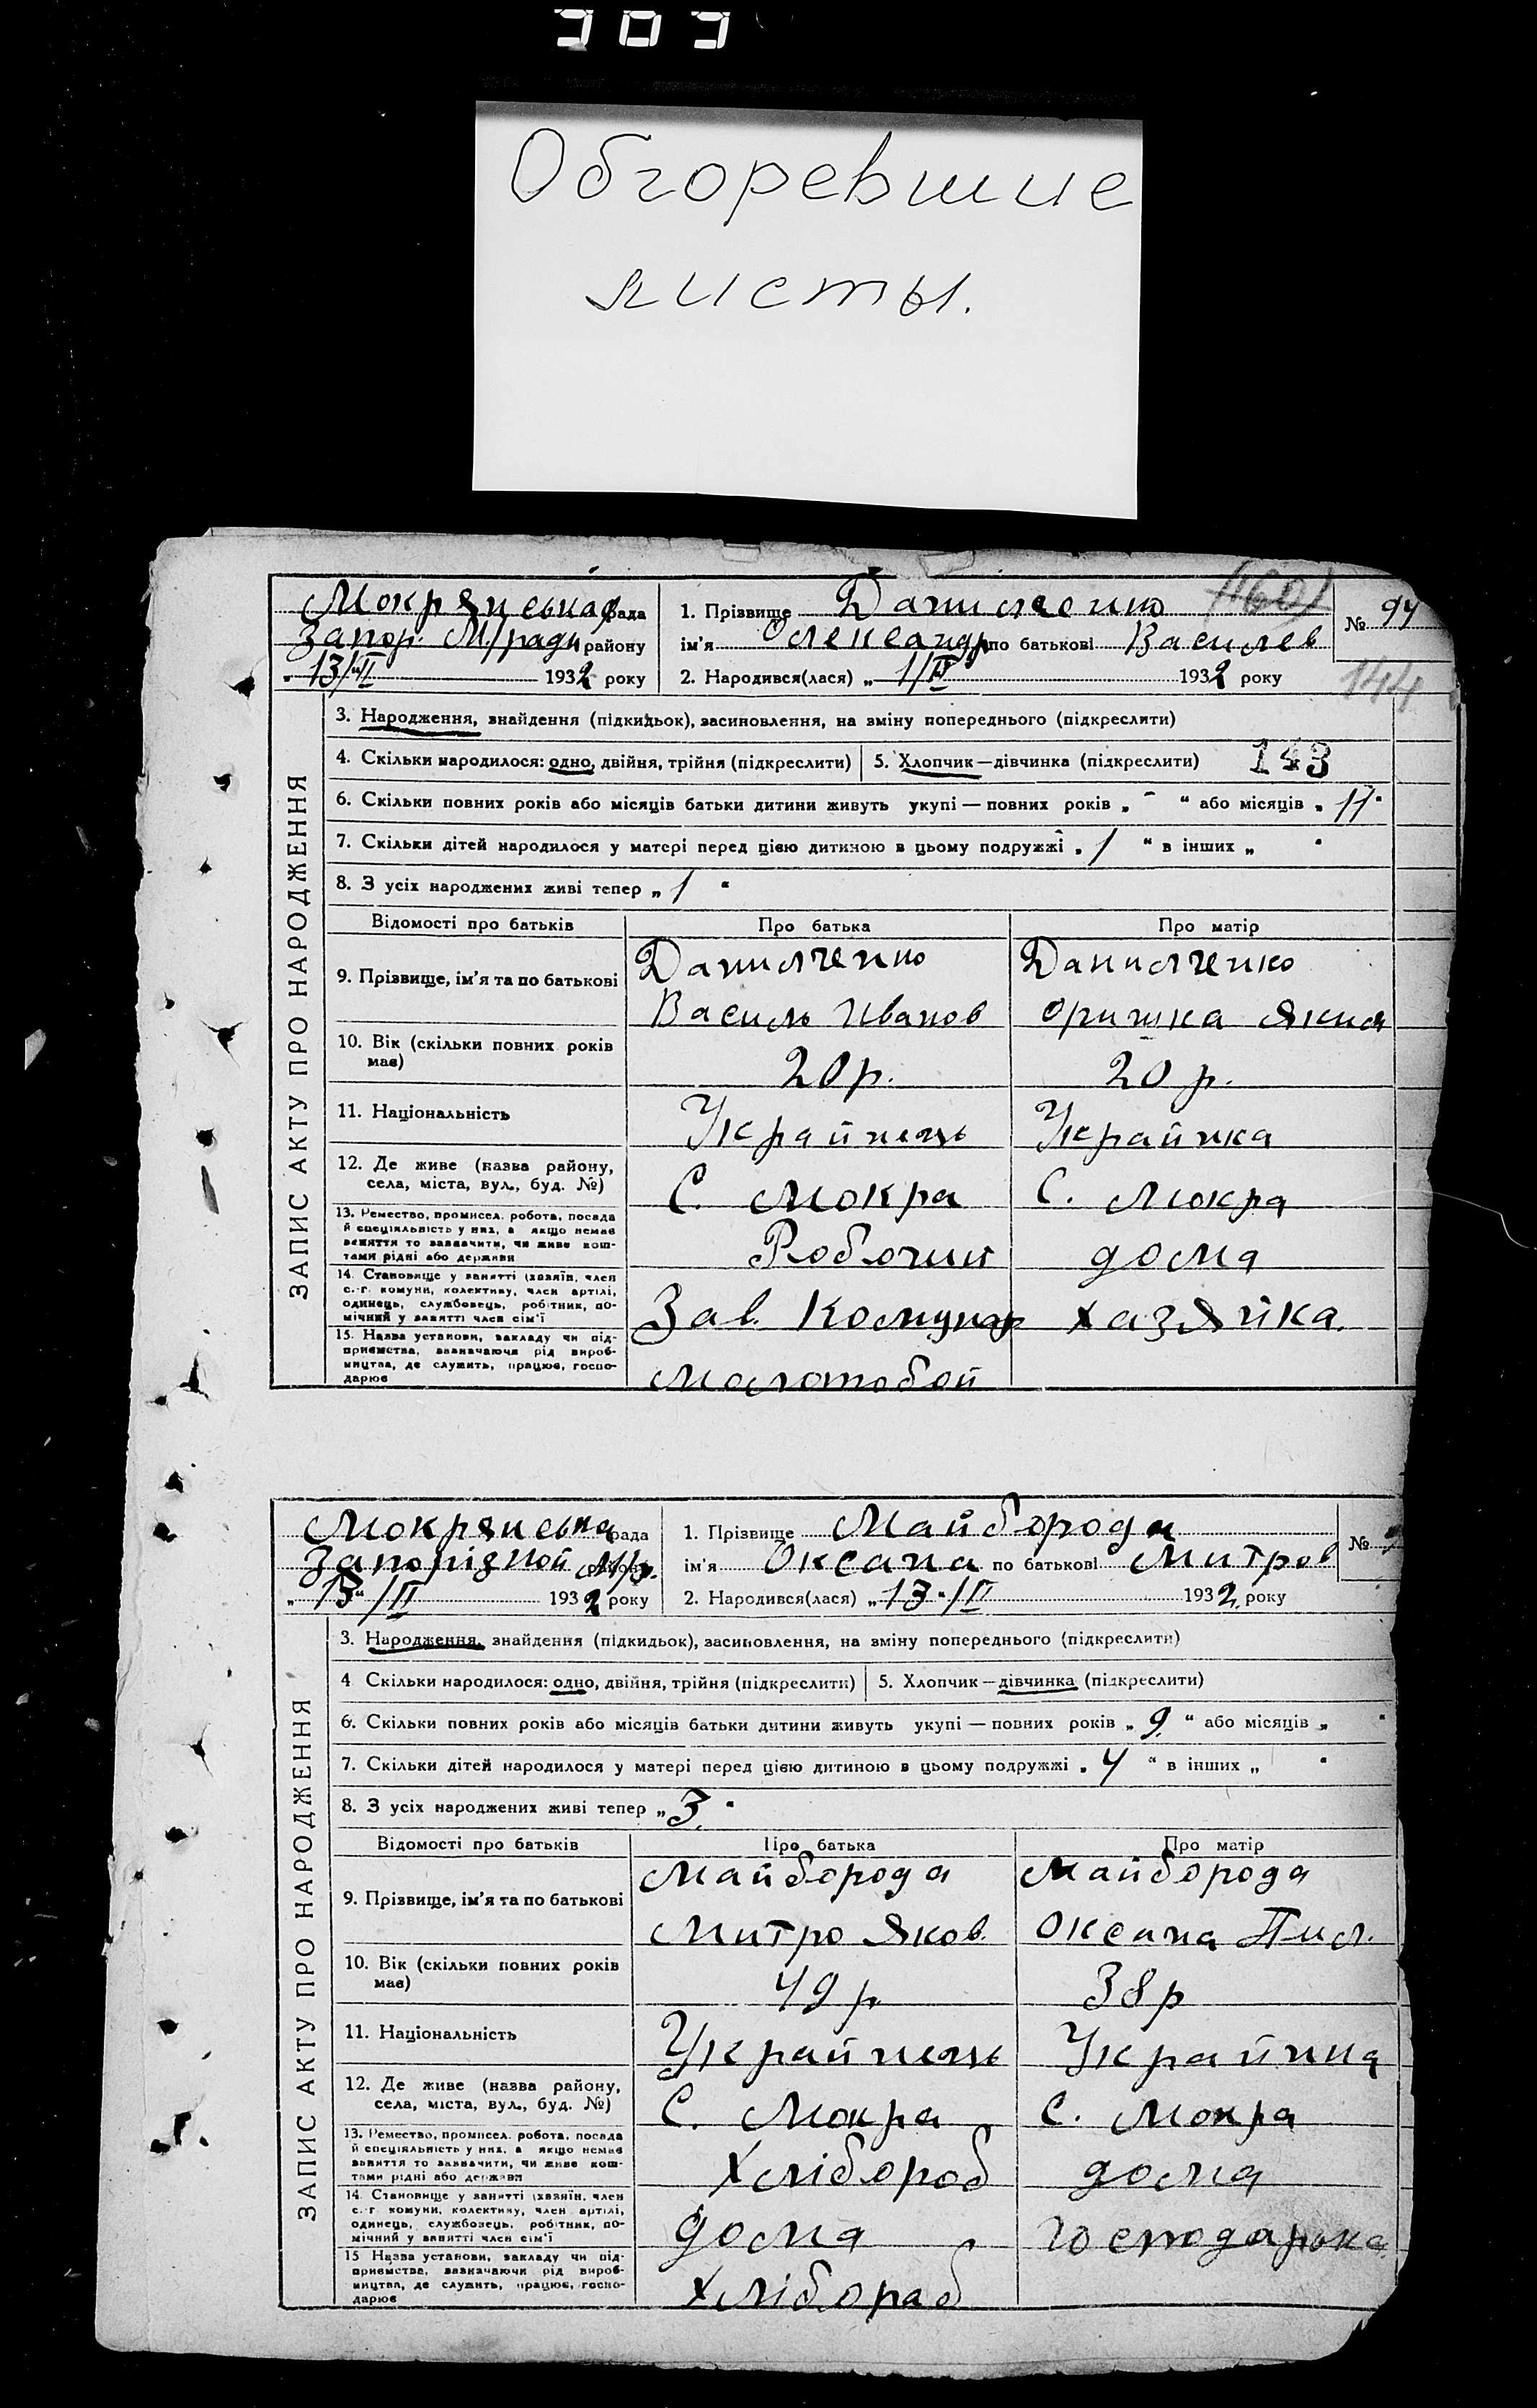 303
Обгоревшие
листы.
Мокрянська рада
Запор. М/ради району
„13/II 1932 року
1. Прізвище Данильченко
ім’я Олександр по батькові Василев
2. Народився(лася) „1/II 1932 року
№ 94
144
3. Народження, знайдення (підкидьок), засиновлення, на зміну попереднього (підкреслити)
4. Скільки народилося: одно, двійня, трійня (підкреслити)
5. Хлопчик—дівчинка (підкреслити)
143
6. Скільки повних років або місяців батьки дитини живуть укупі — повних років „ - “ або місяців „ 11 “
7. Скільки дітей народилося у матері перед цією дитиною в цьому подружжі „ 1 “ в інших „ “
8. З усіх народжених живі тепер „ 1 “
ЗАПИС АКТУ ПРО НАРОДЖЕННЯ
Відомості про батьків
Про батька
Про матір
9. Прізвище, ім’я та по батькові
Данильченко
Василь Иванов
Данильченко
Оришка Яким
10. Вік (скільки повних років
має)
20 р.
20 р.
11. Національність
Украйнець
Украйнка
12. Де живе (назва району,
села, міста, вул., буд. №)
С. Мокра
С. Мокра
13. Ремество, промисел, робота, посада
й спеціяльність у них, а якщо немає
заняття то зазначити, чи живе кош-
тами рідні або держави
Робочий
дома
14. Становище у занятті (хазяїн, член
с.-г. комуни, колективу, член артілі,
одинець, службовець, робітник, по-
мічний у занятті член сім’ї
Зав. Комунар
хазяйка.
15. Назва установи, закладу чи під-
приємства, зазначаючи рід вироб-
ництва, де служить, працює, госпо-
дарює
Молотобой
Мокрянська рада
Запорізкой М/р.
„13“/II 1932 року
1. Прізвище Майборода
ім’я Оксана по батькові Митров
2. Народився(лася) „13“/II 1932 року
№
3. Народження, знайдення (підкидьок), засиновлення, на зміну попереднього (підкреслити)
4 Скільки народилося: одно, двійня, трійня (підкреслити)
5. Хлопчик—дівчинка (підкреслити)
6. Скільки повних років або місяців батьки дитини живуть укупі — повних років „ 9. “ або місяців „ “
7. Скільки дітей народилося у матері перед цією дитиною в цьому подружжі „ 4 “ в інших „ “
8. З усіх народжених живі тепер „ 3. “
ЗАПИС АКТУ ПРО НАРОДЖЕННЯ
Відомості про батьків
Про батька
Про матір
9. Прізвище, ім’я та по батькові
Майборода
Митро Яков.
Майборода
Оксана Пил.
10. Вік (скільки повних років
має)
49 р
38 р
11. Національність
Украйнець
Украйнка
12. Де живе (назва району,
села, міста, вул., буд. №)
С. Мокра
С. Мокра
13. Ремество, промисел, робота, посада
й спеціяльність у них, а якщо немає
заняття то зазначити, чи живе кош-
тами рідні або держави
Хлібороб
дома
14. Становище у занятті (хазяїн, член
с.-г. комуни, колективу, член артілі,
одинець, службовець, робітник, по-
мічний у занятті член сім’ї
дома
господарька.
15 Назва установи, закладу чи під-
приємства, зазначаючи рід вироб-
ництва, де служить, працює, госпо-
дарює
Хлібораб